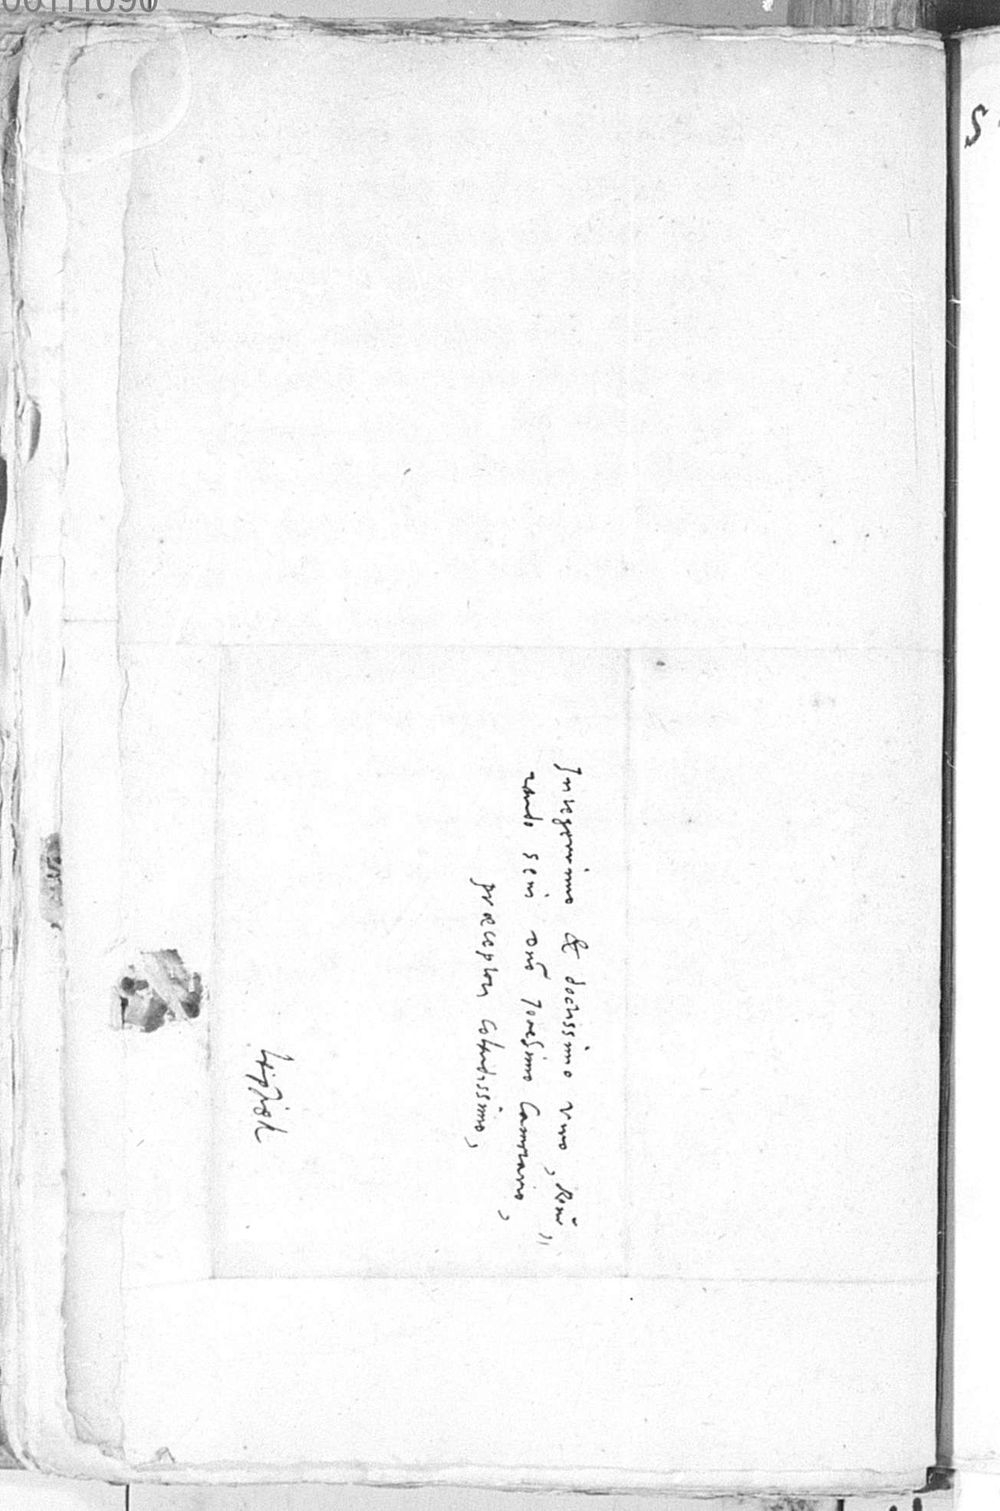 Integerrimo & doctissimo viro,
rando seni dno Joachimo Camerario,
præceptori colendissimo,
Lipsiæ